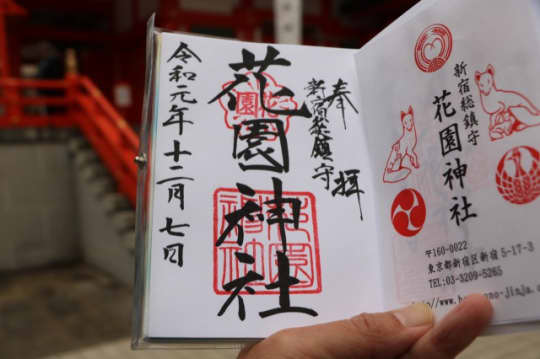 奉拝
新宿総鎮守
花園神社
令和元年十二月七日
花園
新宿総鎮守
花園神社
〒160-0022
東京都新宿区新宿 5-17-3
TEL:03-3209-5265